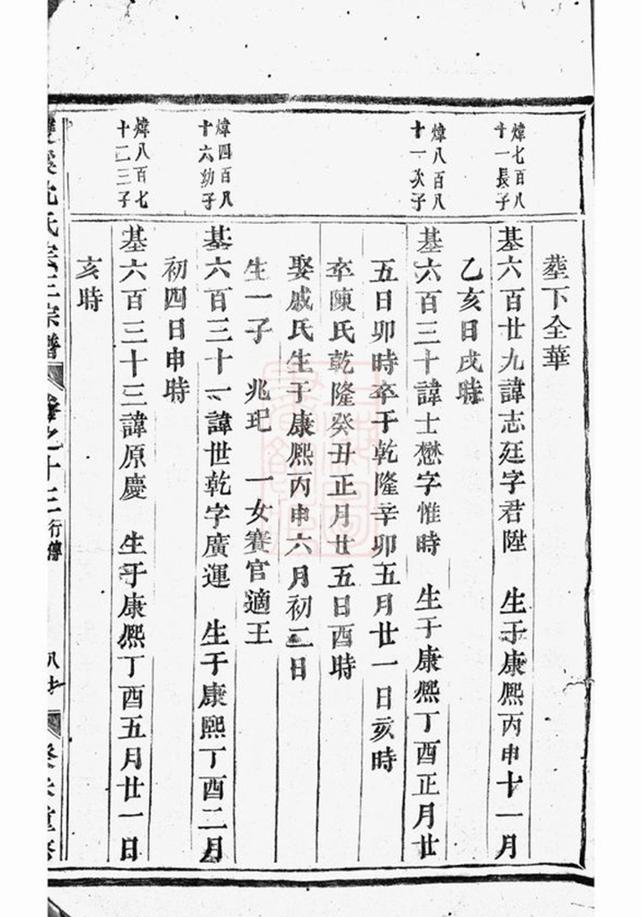 塟下全華
煒七百八
十一長子
基六百廿九諱志廷字君陞 生于康熙丙申十一月
乙亥日戌時
煒八百八
十一次子
基六百三十諱士懋字惟時 生于康熙丁酉正月廿
五日卯時卒于乾隆辛卯五月廿一日亥時
卒陳氏乾隆癸丑正月廿五日酉時
娶戚氏生于康熙丙申六月初二日
生一子 兆玘 一女賽官適王
煒四百八
十六幼子
基六百三十一諱世乾字廣運 生于康熙丁酉二月
初四日申時
煒八百七
十二三子
基六百三十三諱原慶 生于康熙丁酉五月廿一日
亥時
沈氏宗譜
卷之十三 行傳